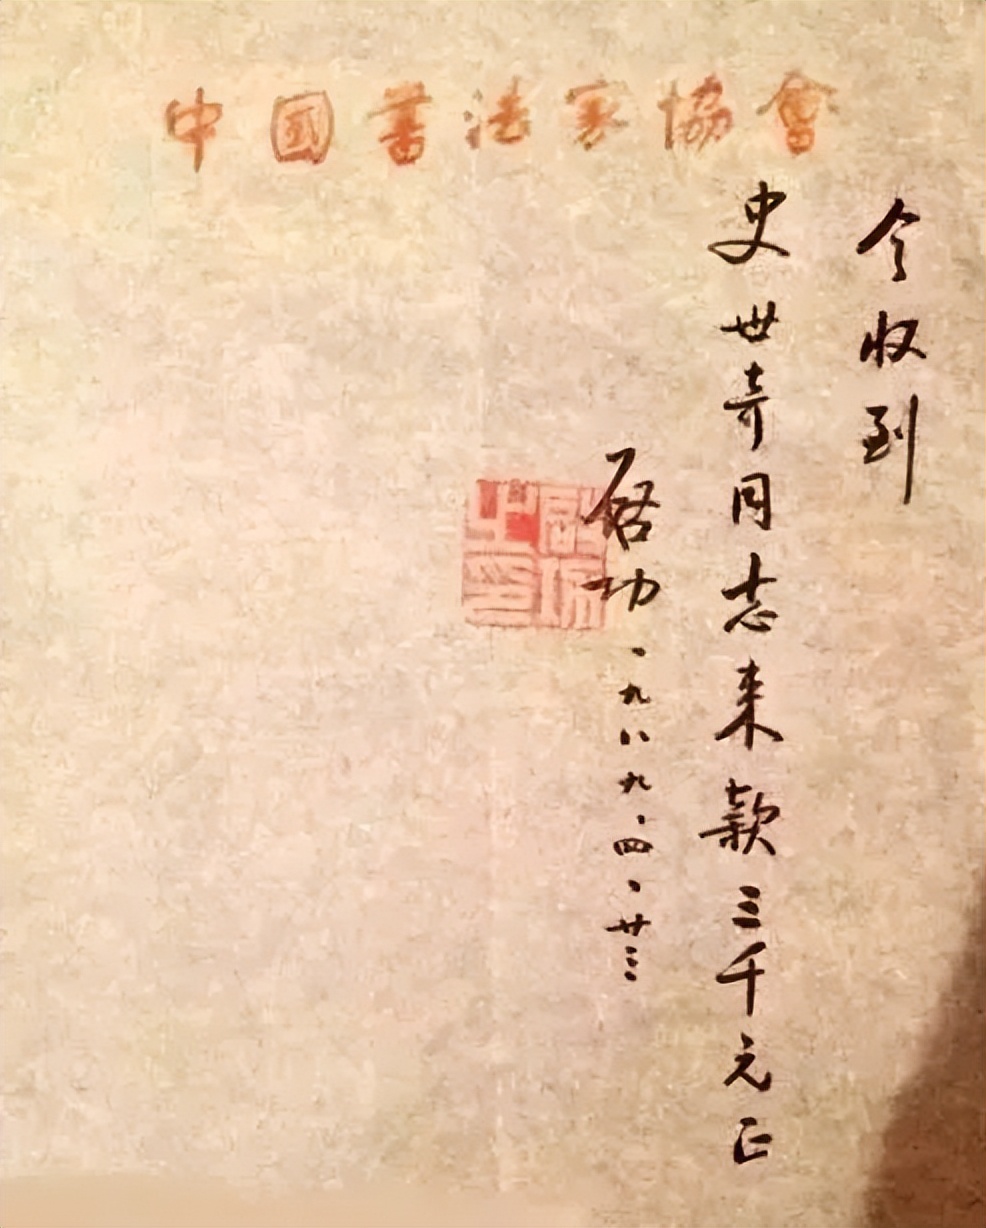 中國書法家協會
今收到
史世奇同志来款三千元正
启功、九八九、四、廿三